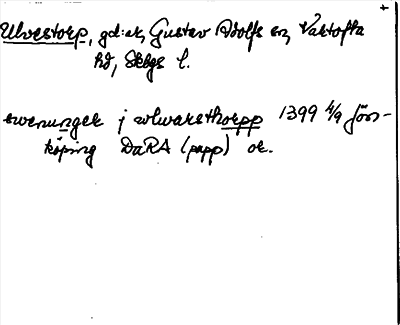 Ulvestorp, gd:ar, Gustav Adolfs sn, Vartofta
hd, Skbgs l.
swenunger j wlwarsthorpp 1399 4/9 Jön-
köping DaRA (papp) or.